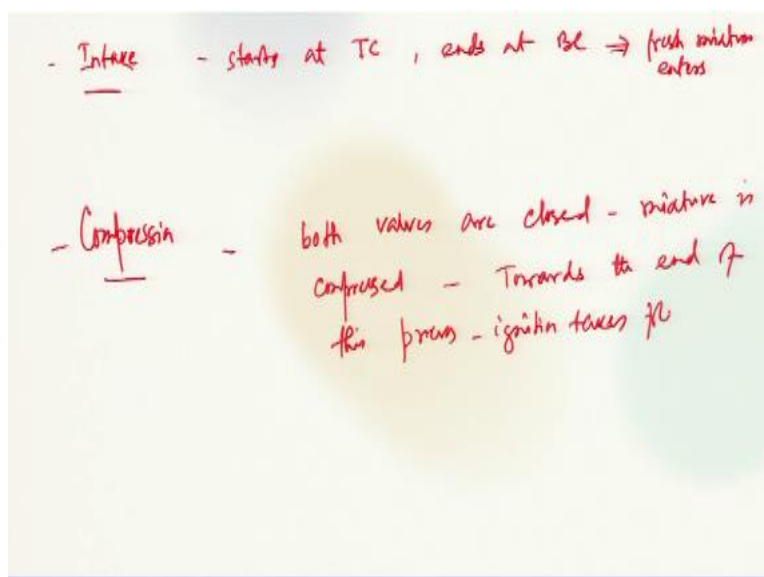 - Intake - starts at TC, ends at BC ⇒ fresh mixture
enters
- Compression - both valves are closed - mixture is
compressed - Towards the end of
this process - ignition takes pl